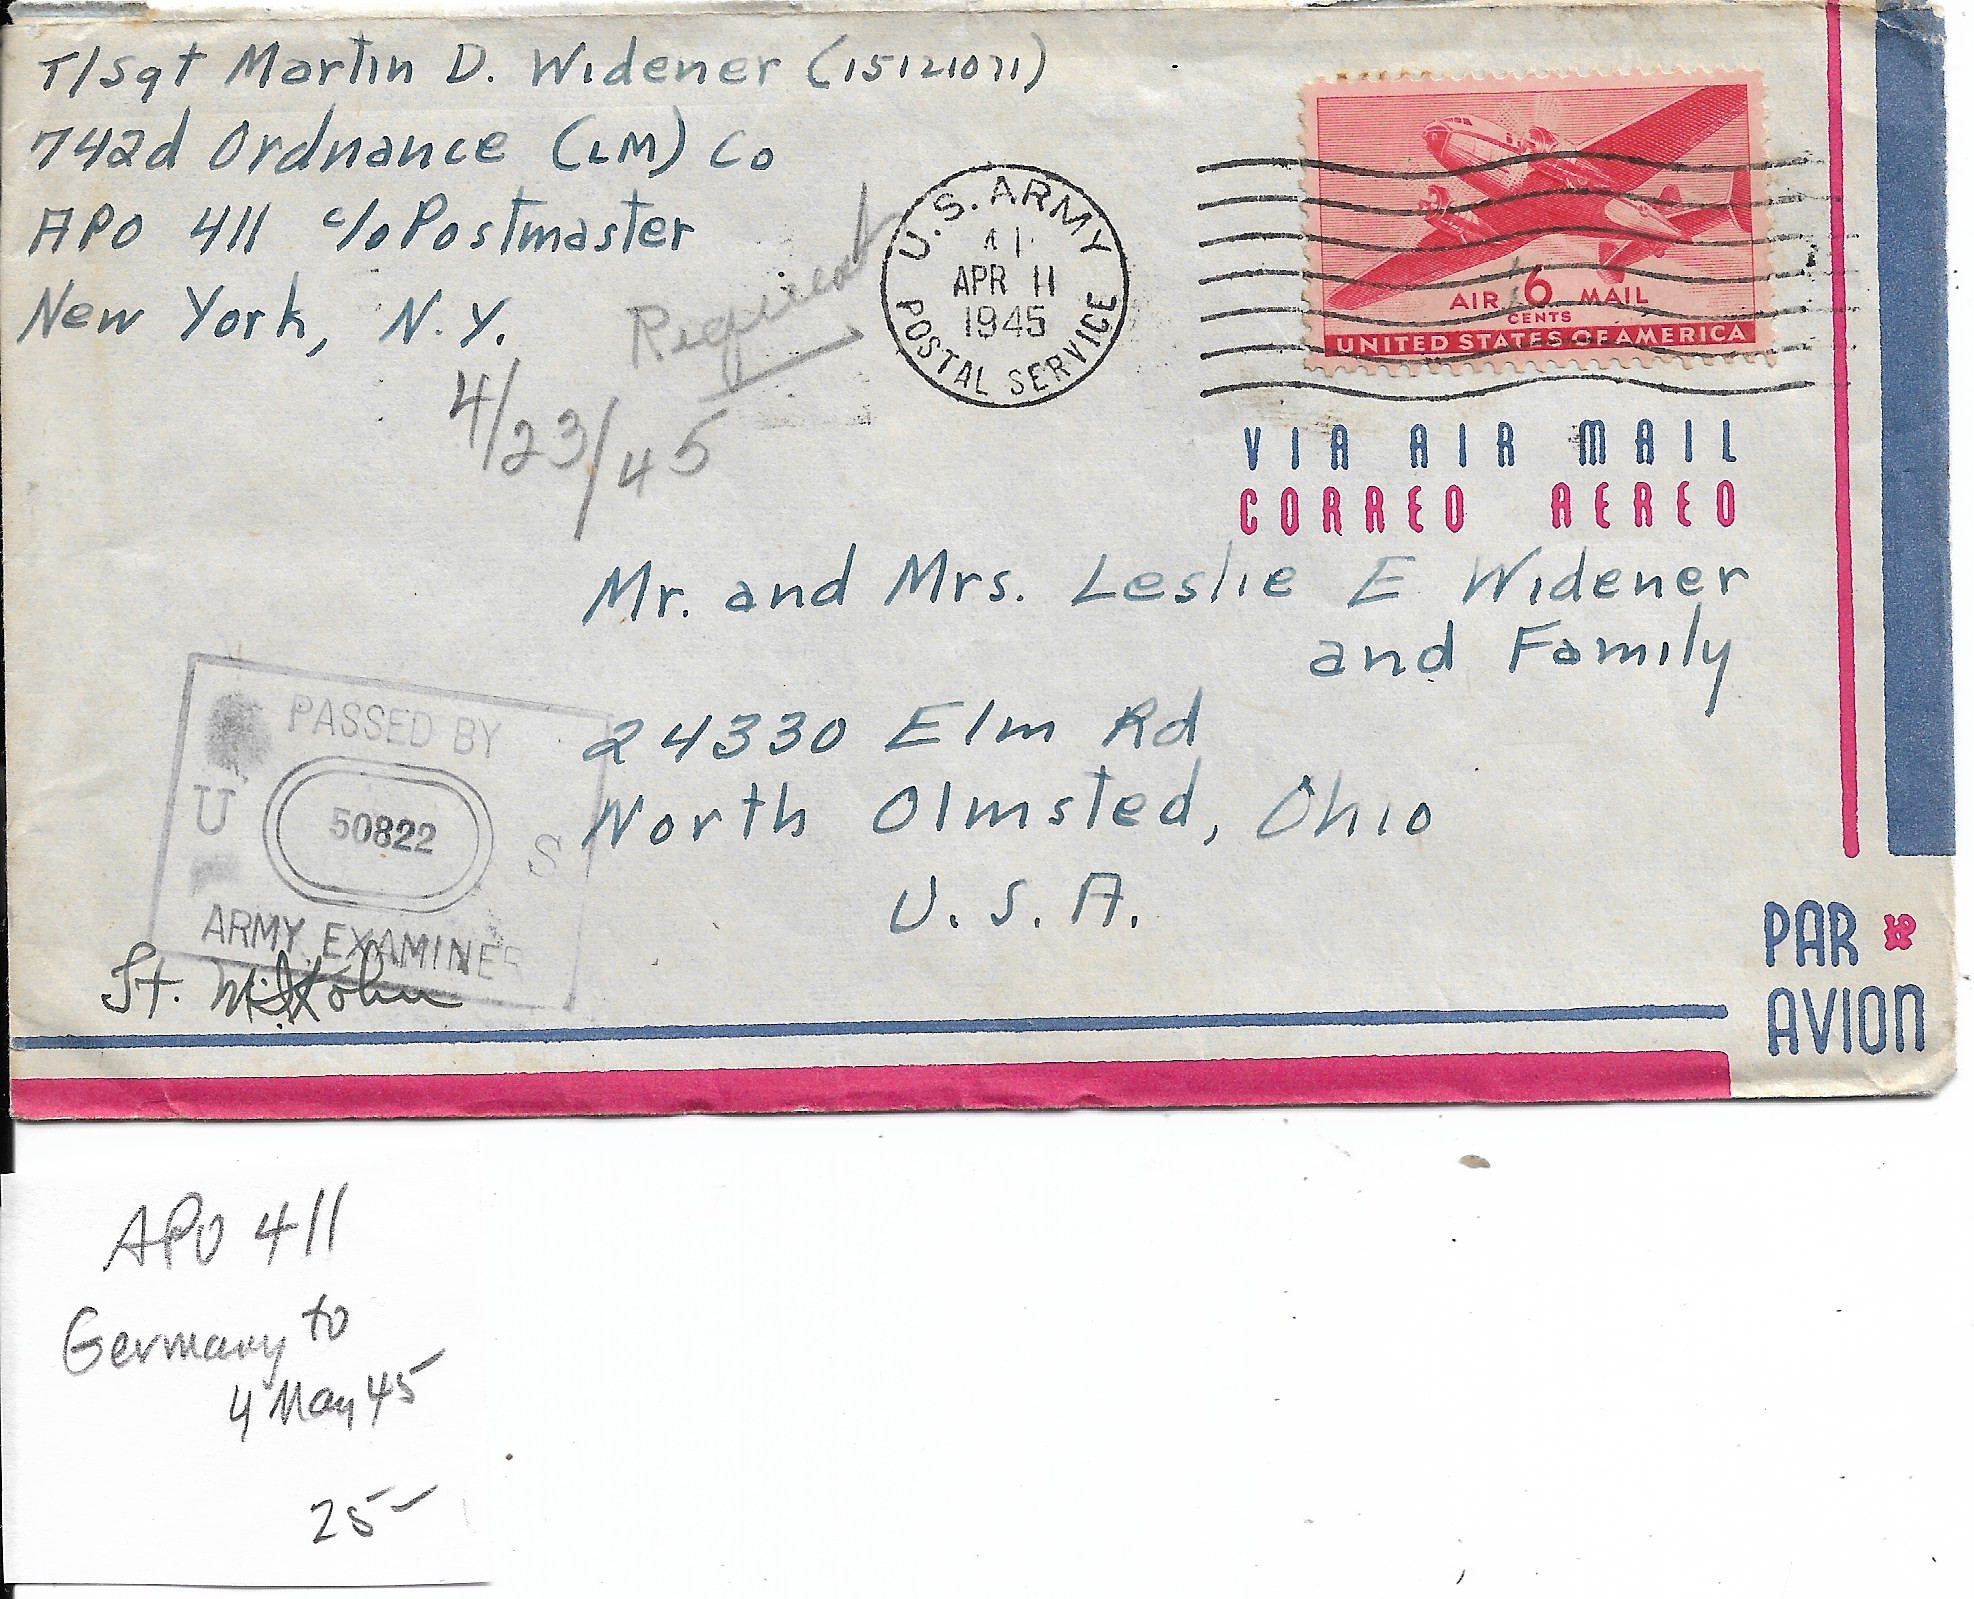 T/Sgt Martin D. Widener (15121071)
742d Ordnance (LM) Co
APO 411 c/o Postmaster
New York, N.Y.
Request
4/23/45
U.S. ARMY
APR 11
1945
POSTAL SERVICE
AIR 6 MAIL
CENTS
UNITED STATES OF AMERICA
VIA AIR MAIL
CORREO AEREO
Mr. and Mrs. Leslie E Widener
and Family
24330 Elm Rd
North Olmsted, Ohio
U.S.A.
PASSED BY
U 50822 S
ARMY EXAMINER
PAR
AVION
APO 411
Germany to
4 May 45
25-